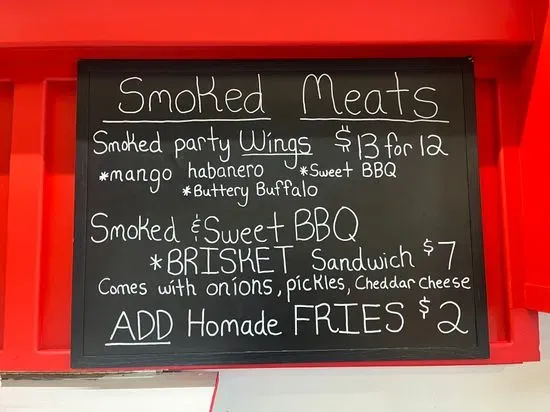 Smoked Meats
Smoked party Wings $13 for 12
*mango habanero *Sweet BBQ
*Buttery Buffalo
Smoked & Sweet BBQ
*BRISKET Sandwich $7
Comes with onions, pickles, Cheddar cheese
ADD Homade FRIES $2